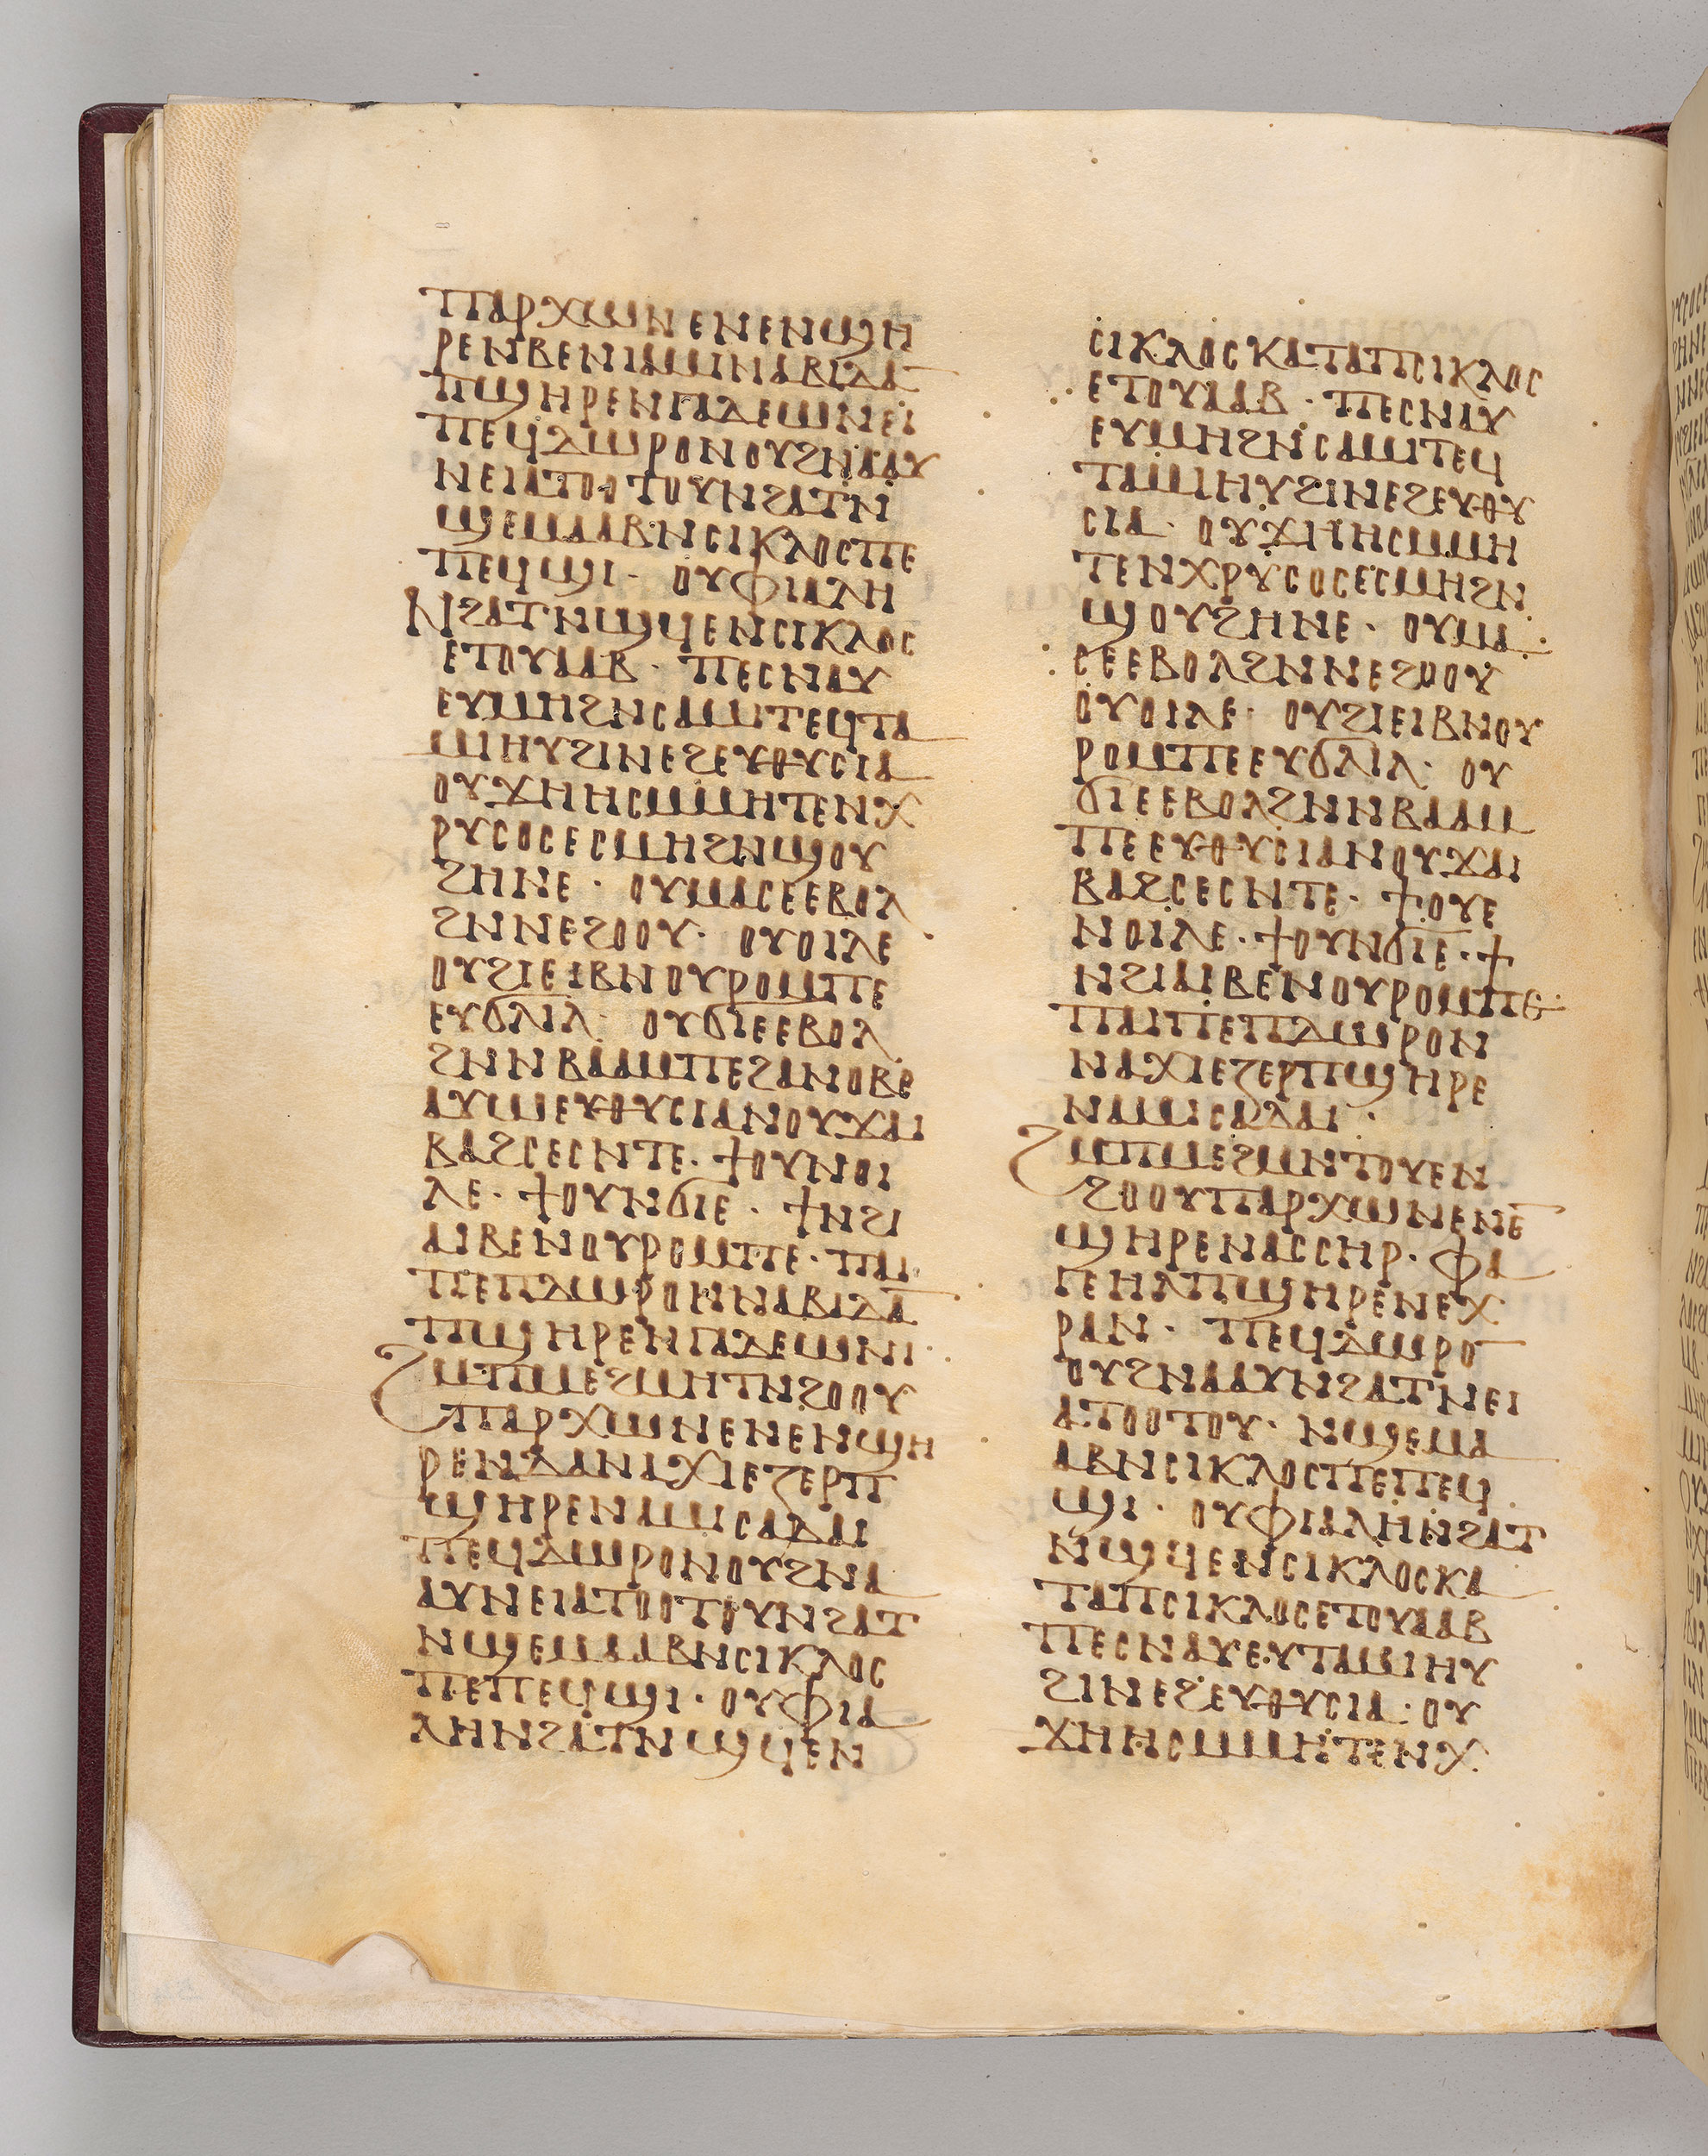 ⲡⲁⲣⲭⲱⲛⲉⲛⲉⲛϣⲏ
ⲣⲉⲛⲃⲉⲛⲓⲁⲙⲓⲛⲁⲃⲓⲇⲁ
ⲡϣⲏⲣⲉⲛⲅⲁⲇⲉⲱⲛⲉⲓ
ⲡⲉϥⲇⲱⲣⲟⲛⲟⲩϩⲛⲁⲁⲩ
ⲛⲉⲓⲁⲧⲟⲟⲧⲟⲩⲛϩⲁⲧⲛ
ϣⲉⲙⲁⲁⲃⲛⲥⲓⲕⲗⲟⲥⲡⲉ
ⲡⲉϥϣⲓ· ⲟⲩⲫⲓⲁⲗⲏ
ⲛϩⲁⲧⲛϣϥⲉⲛⲥⲓⲕⲗⲟⲥ
ⲉⲧⲟⲩⲁⲁⲃ· ⲡⲉⲥⲛⲁⲩ
ⲉⲩⲙⲏϩⲛⲥⲁⲙⲓⲧⲉϥⲧⲁ
ⲙⲓⲏⲩϩⲓⲛⲉϩⲉⲩⲑⲩⲥⲓⲁ
ⲟⲩϫⲏⲏⲥⲙⲙⲏⲧⲉⲛⲭ
ⲣⲩⲥⲟⲥⲉⲥⲙⲏϩⲛϣⲟⲩ
ϩⲏⲛⲉ· ⲟⲩⲙⲁⲥⲉⲉⲃⲟⲗ
ϩⲛⲛⲉϩⲟⲟⲩ· ⲟⲩⲟⲓⲗⲉ
ⲟⲩϩⲓⲉⲓⲃⲛⲟⲩⲣⲟⲙⲡⲉ
ⲉⲩϭⲗⲓⲗ· ⲟⲩϭⲓⲉⲉⲃⲟⲗ
ϩⲛⲛⲃⲁⲁⲙⲡⲉϩⲁⲛⲟⲃⲉ
ⲁⲩⲱⲉⲩⲑⲩⲥⲓⲁⲛⲟⲩϫⲁⲓ
ⲃⲁϩⲥⲉⲥⲛⲧⲉ· ϯⲟⲩⲛⲟⲓ
ⲗⲉ· ϯⲟⲩⲛϭⲓⲉ· ϯⲛϩⲓ
ⲁⲓⲃⲉⲛⲟⲩⲣⲟⲙⲡⲉ· ⲡⲁⲓ
ⲡⲉⲡⲇⲱⲣⲟⲛⲛⲁⲃⲓⲇⲁ
ⲡϣⲏⲣⲉⲛⲅⲁⲇⲉⲱⲛⲓ
ϩⲙⲡⲙⲉϩⲙⲏⲧⲛϩⲟⲟⲩ
ⲡⲁⲣⲭⲱⲛⲉⲛⲉⲛϣⲏ
ⲣⲉⲛⲇⲁⲛⲁⲭⲓⲉⲍⲉⲣⲡ
ϣⲏⲣⲉⲛⲁⲙⲓⲥⲁⲇⲁⲓ
ⲡⲉϥⲇⲱⲣⲟⲛⲟⲩϩⲛⲁ
ⲁⲩⲛⲉⲓⲁⲧⲟⲟⲧⲟⲩⲛϩⲁⲧ
ⲛϣⲉⲙⲁⲁⲃⲛⲥⲓⲕⲗⲟⲥ
ⲡⲉⲡⲉϥϣⲓ· ⲟⲩⲫⲓⲁ
ⲗⲏⲛϩⲁⲧⲛϣϥⲉⲛ
ⲥⲓⲕⲗⲟⲥⲕⲁⲧⲁⲡⲥⲓⲕⲗⲟⲥ
ⲉⲧⲟⲩⲁⲁⲃ· ⲡⲉⲥⲛⲁⲩ
ⲉⲩⲙⲏϩⲛⲥⲁⲙⲓⲧⲉϥ
ⲧⲁⲙⲓⲏⲩϩⲓⲛⲉϩⲉⲩⲑⲩ
ⲥⲓⲁ· ⲟⲩϫⲏⲏⲥⲙⲙⲏ
ⲧⲉⲛⲭⲣⲩⲥⲟⲥⲉⲥⲙⲏϩⲛ
ϣⲟⲩϩⲏⲛⲉ· ⲟⲩⲙⲁ
ⲥⲉⲉⲃⲟⲗϩⲛⲛⲉϩⲟⲟⲩ
ⲟⲩⲟⲓⲗⲉ· ⲟⲩϩⲓⲉⲓⲃⲛⲟⲩ
ⲣⲟⲙⲡⲉⲉⲩϭⲗⲓⲗ· ⲟⲩ
ϭⲓⲉⲉⲃⲟⲗϩⲛⲛⲃⲁⲁⲙ
ⲡⲉⲉⲩⲑⲩⲥⲓⲁⲛⲟⲩϫⲁⲓ
ⲃⲁϩⲥⲉⲥⲛⲧⲉ· ϯⲟⲩⲉ
ⲛⲟⲓⲗⲉ· ϯⲟⲩⲛϭⲓⲉ· ϯ
ⲛϩⲓⲁⲓⲃⲉⲛⲟⲩⲣⲟⲙⲡⲉ·
ⲡⲁⲓⲡⲉⲡⲇⲱⲣⲟⲛ
ⲛⲁⲭⲓⲉⲍⲉⲣⲡϣⲏⲣⲉ
ⲛⲁⲙⲓⲥⲁⲇⲁⲓ·
ϩⲙⲡⲙⲉϩⲙⲛⲧⲟⲩⲉⲛ
ϩⲟⲟⲩⲡⲁⲣⲭⲱⲛⲉⲛⲉ̅
ϣⲏⲣⲉⲛⲁⲥⲥⲏⲣ· ⲫⲁ
ⲅⲉⲏⲗⲡϣⲏⲣⲉⲛⲉⲭ
ⲣⲁⲛ· ⲡⲉϥⲇⲱⲣⲟ̅
ⲟⲩϩⲛⲁⲁⲩⲛϩⲁⲧⲛⲉⲓ
ⲁⲧⲟⲟⲧⲟⲩ· ⲛϣⲉⲙⲁ
ⲁⲃⲛⲥⲓⲕⲗⲟⲥⲡⲉⲡⲉϥ
ϣⲓ· ⲟⲩⲫⲓⲁⲗⲏⲛϩⲁⲧ
ⲛϣϥⲉⲛⲥⲓⲕⲗⲟⲥⲕⲁ
ⲧⲁⲡⲥⲓⲕⲗⲟⲥⲉⲧⲟⲩⲁⲁⲃ
ⲡⲉⲥⲛⲁⲩⲉⲩⲧⲁⲙⲓⲏⲩ
ϩⲓⲛⲉϩⲉⲩⲑⲩⲥⲓⲁ· ⲟⲩ
ϫⲏⲏⲥⲙⲙⲏⲧⲉⲛⲭ